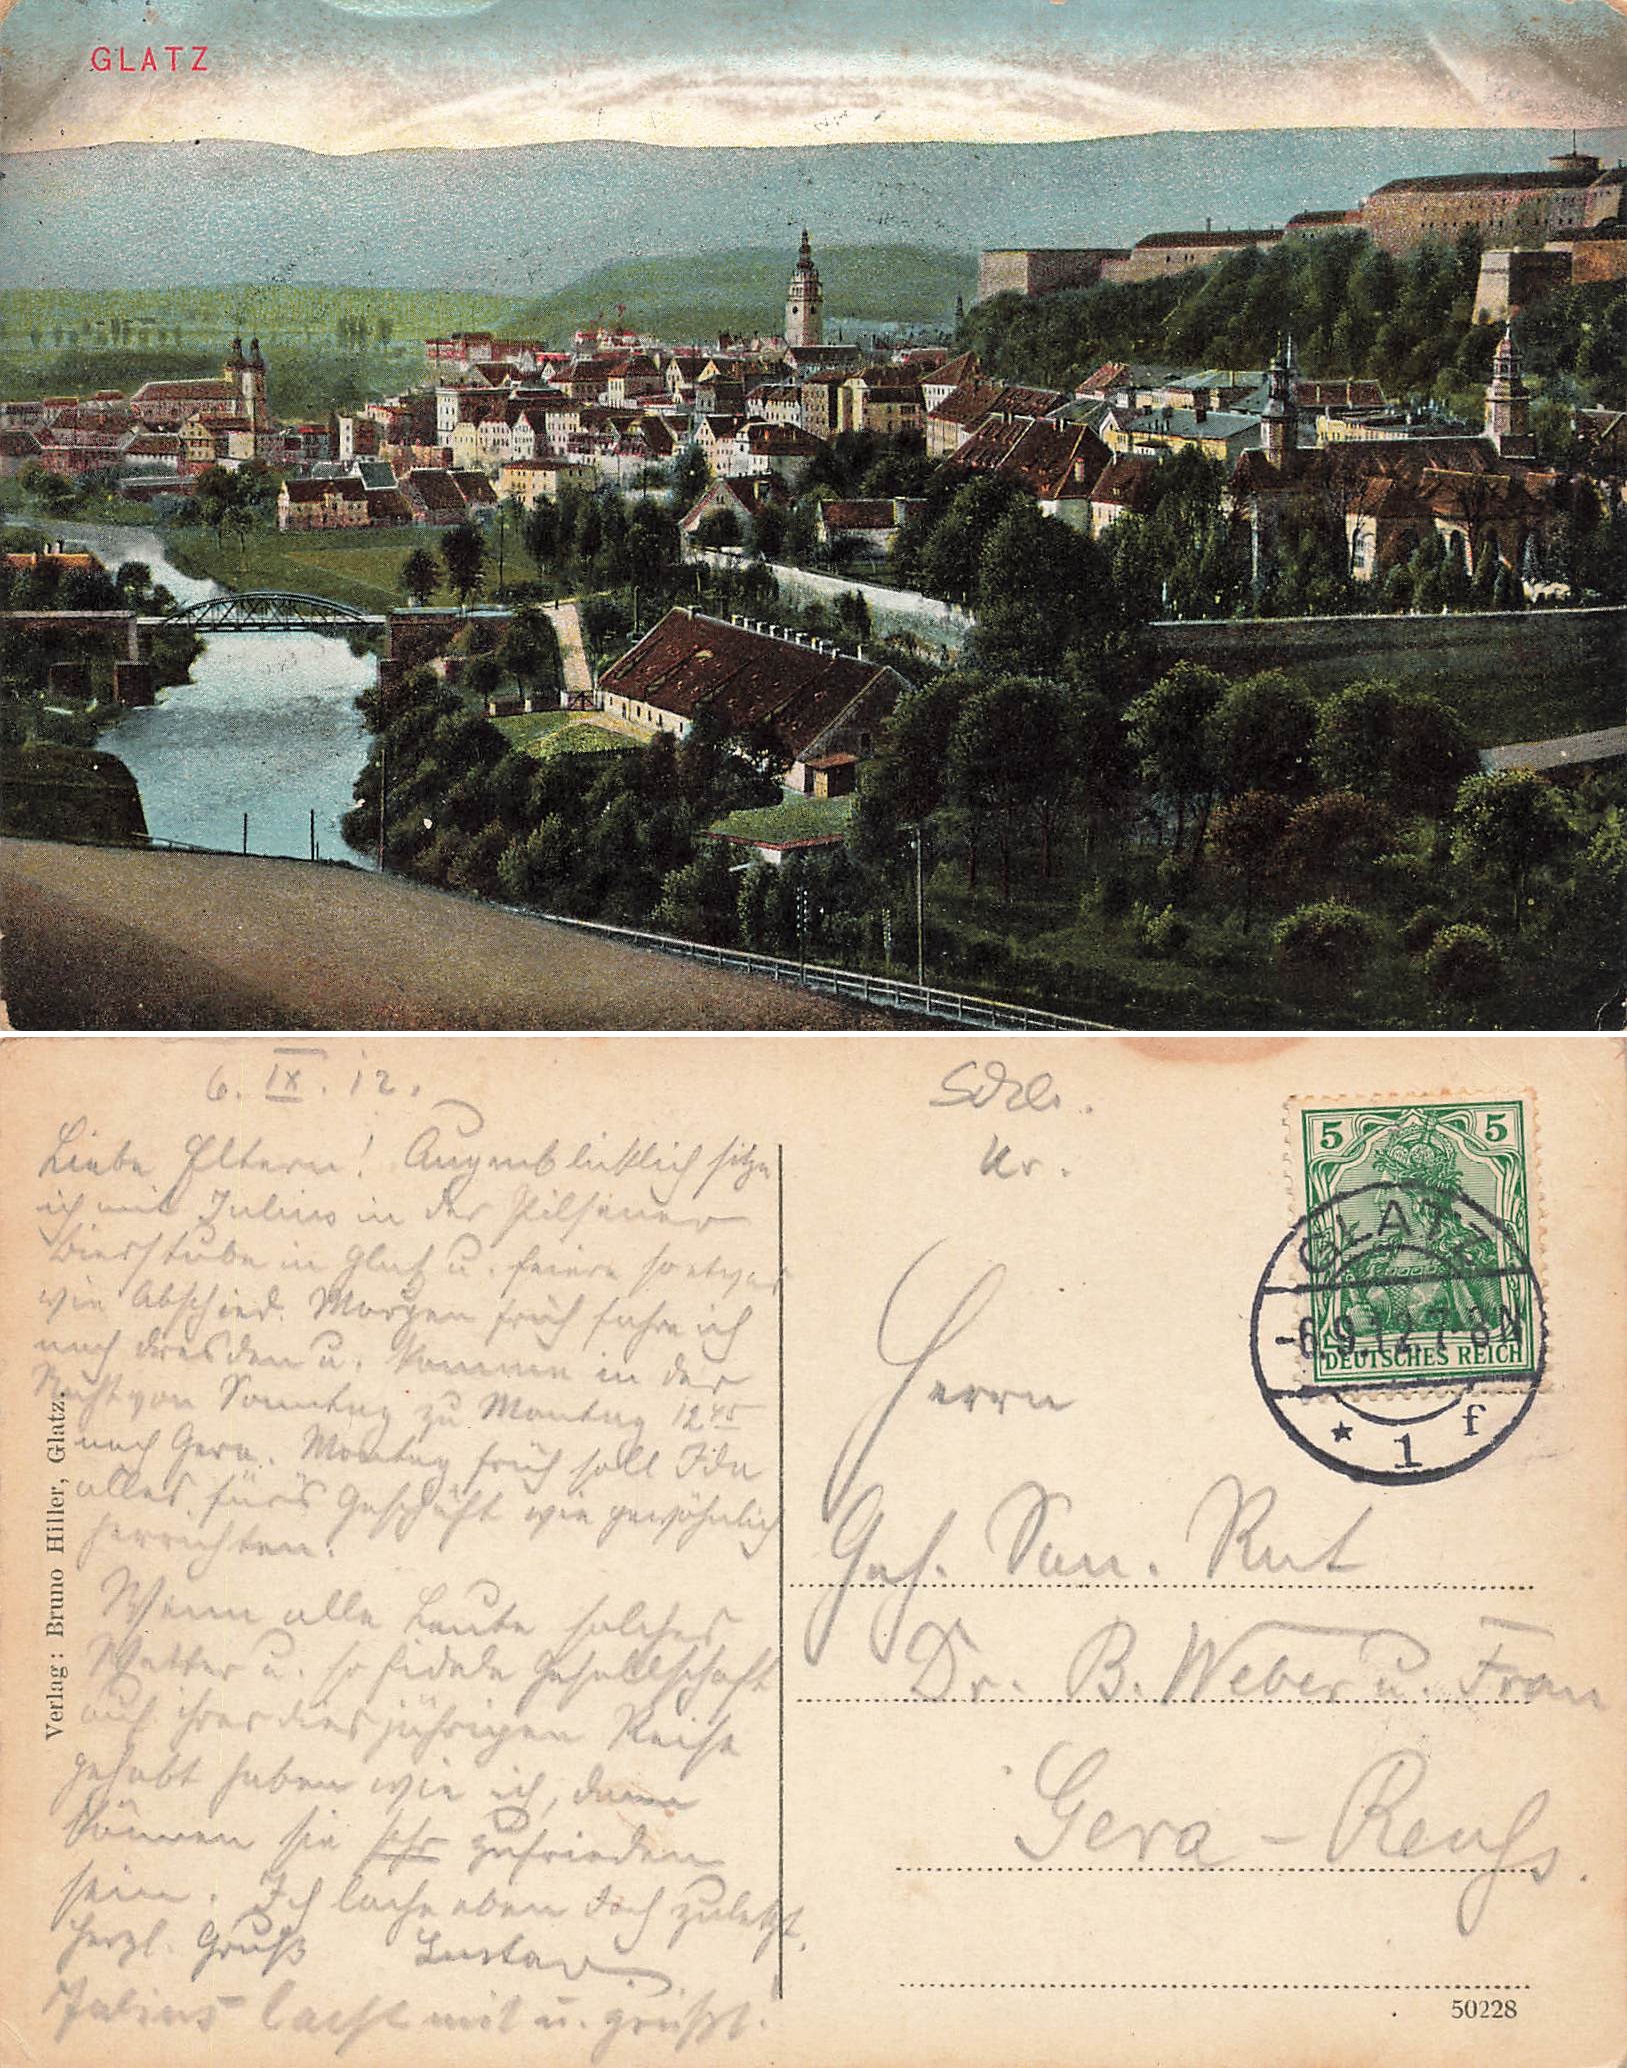 GLATZ
6. IX. 12.
Liebe Eltern! Augenblicklich sitze
ich mit Julius in der Pilsener
Bierstube in Glatz u. feiere so etwas
wie Abschied. Morgen früh fahre ich
nach Dresden u. komme in der
Nacht von Sonntag zu Montag 12 45
nach Gera. Montag früh soll Ida
alles für's Geschäft wie gewöhnlich
herrichten.
Wenn alle Leute solches
Wetter u. so fidele Gesellschaft
auf ihrer diesjährigen Reise
gehabt haben wie ich, dann
können sie sehr zufrieden
sein. Ich lache eben doch zuletzt.
Herzl. Gruß Gustav
Julius lacht mit u. grüßt.
Verlag: Bruno Hiller, Glatz.
5 5
DEUTSCHES REICH
GLATZ
-6.9.12.7-8N
* 1 f
Herrn
Geh. San. Rat
Dr. B. Weber u. Frau
Gera - Reuß.
50228